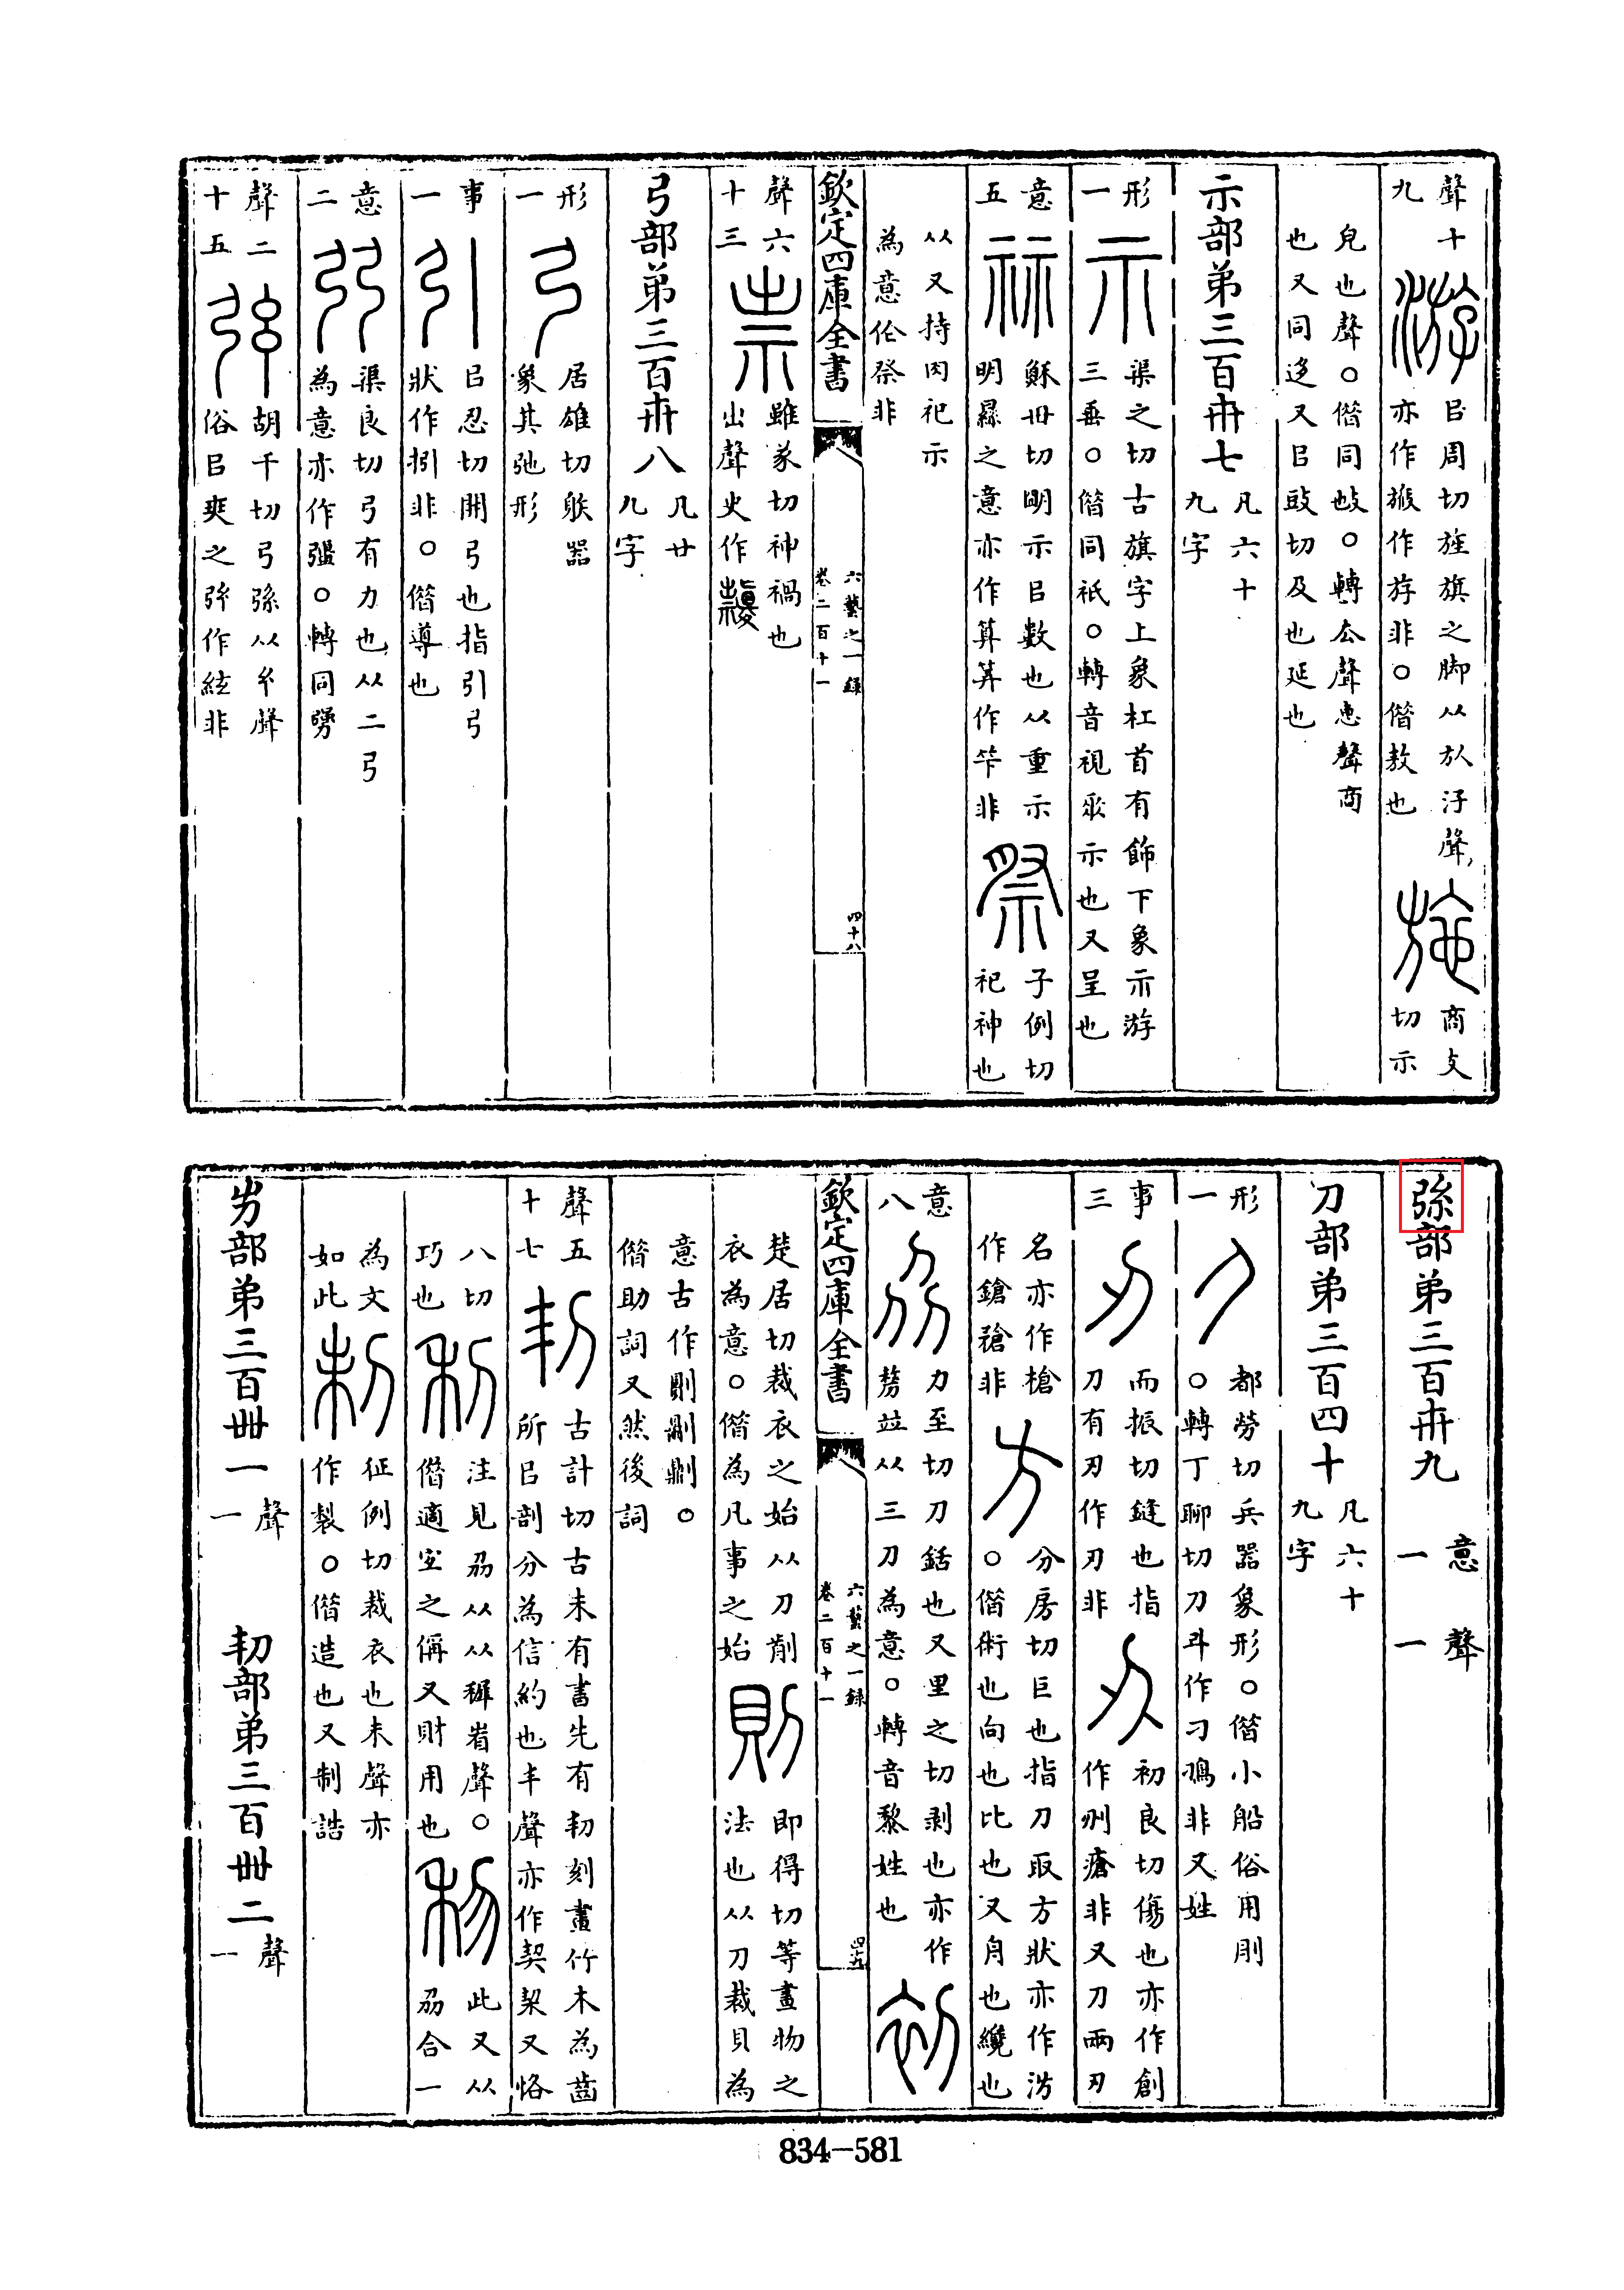 聲十九 游 㠯周切旌旗之脚从㫃汓聲亦作斿非○借敖也 施 商支切示
皃也聲○借同㪃○轉厺聲恵聲商也又同迻又㠯豉切及也延也
示部弟三百卅七 凡六十九字
形一 示 渠之切古旗字上象杠首有飾下象示游三垂○借同祇○轉音視示也又呈也
意五 祘 穌毌切明示㠯數也从重示明㬎之意亦作筭算作笇非 祭 子例切祀神也
从又持肉祀示為意伦祭非
欽定四庫全書 六藝之一録 卷二百十一 四十八
聲六十三 祟 雖㒸切神禍也出聲史作
弓部弟三百卅八 凡廿九字
形一 弓 居雄切䠶器象其弛形
事一 引 㠯忍切開弓也指引弓狀作拐非○借導也
意二 弜 渠良切弓有力也从二弓為意亦作彊○轉同勥
聲二十五 弦 胡千切弓弦从幺聲俗㠯爽之弦作絃非
弦部弟三百卅九 意一 聲一
刀部弟三百四十 凡六十九字
形一 刀 都勞切兵器象形○借小船俗用刖○轉丁聊切刀斗作刁鳭非又姓
事三 刃 而振切鋒也指刀有刃作刄非 刅 初良切傷也亦作創作刱瘡非又刀兩刃
名亦作槍作鎗䅮非 方 分房切巨也指刀㕞方狀亦作汸○借術也向也比也又舟也纜也
意八 刕 力至切刀銛也又里之切剥也亦作剺竝从三刀為意○轉音黎姓也 初
欽定四庫全書 六藝之一録 卷二百十一 四十九
楚居切裁衣之始从刀削衣為意○借為凡事之始 則 即得切等畫物之法也从刀裁貝為
意古作劓○借助詞又然後詞
聲五十七 㓞 古計切古未有書先有㓞刻畫竹木為齒所㠯剖分為信約也丯聲亦作契栔又恪
八切巧也 利 注見刕从从犂省聲○借適宜之偁又財用也 𥝢 此又从刕合一
為文如此 制 征例切裁衣也未聲亦作製○借造也又制誥
屶部弟三百卌一 聲一 㓞部弟三百卌二 聲一
834-581